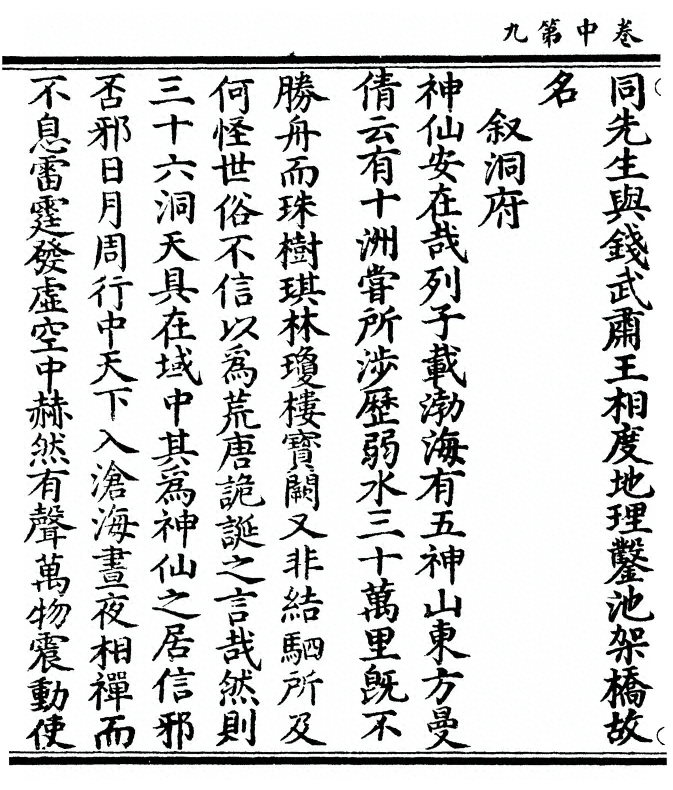 卷中第九
同先生與錢武肅王相度地理鑿池架橋故
名
叙洞府
神仙安在哉列子載渤海有五神山東方曼
倩云有十洲嘗所涉歷弱水三十萬里旣不
勝舟而珠樹琪林瓊樓寶闕又非結駟所及
何怪世俗不信以爲荒唐詭誕之言哉然則
三十六洞天具在域中其爲神仙之居信邪
否邪日月周行中天下入滄海晝夜相禪而
不息雷霆發虛空中赫然有聲萬物震動使